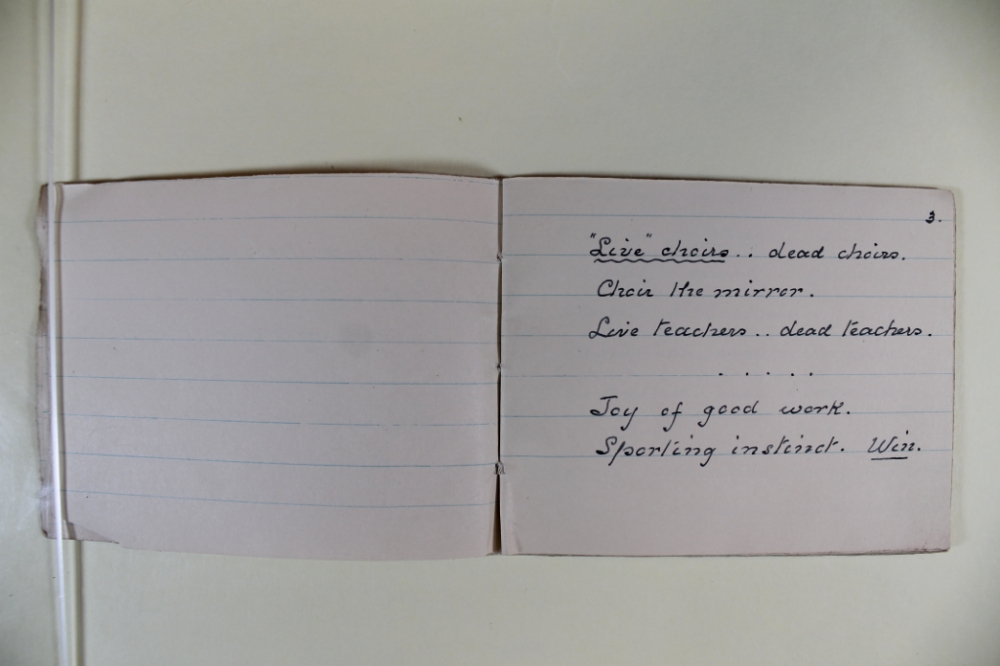 3.
"Live" choirs .. dead choirs.
Choir the mirror.
Live teachers .. dead teachers.
. . . . .
Joy of good work.
Sporting instinct. Win.